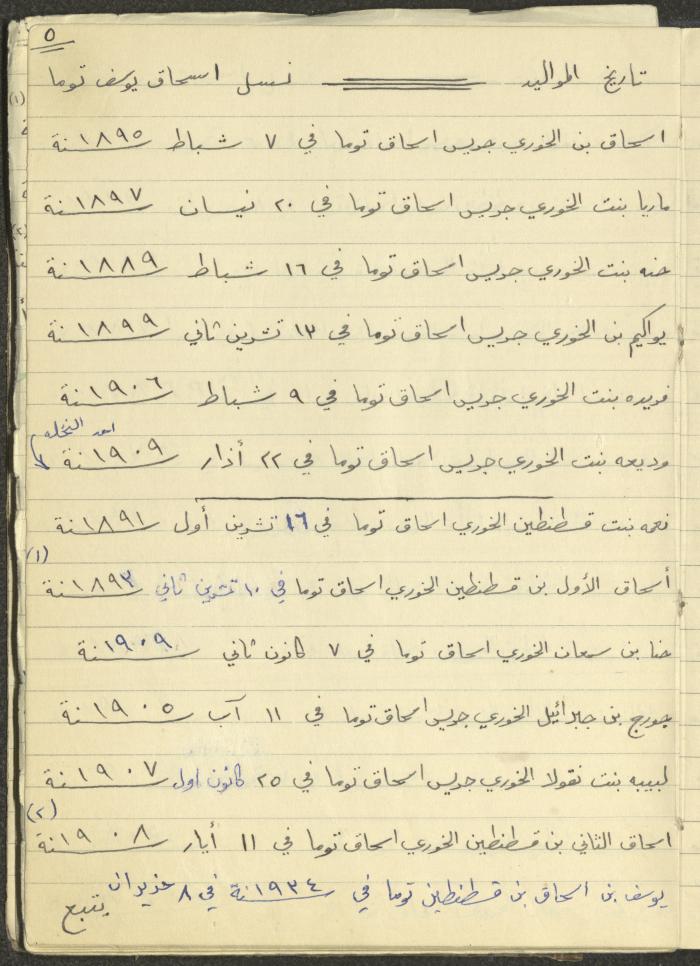 ٥
تاريخ المواليد نسل اسحاق يوسف توما
اسحاق بن الخوري جريس اسحاق توما في ٧ شباط سنة ١٨٩٥
ماريا بنت الخوري جريس اسحاق توما في ٢٠ نيسان سنة ١٨٩٧
حنه بنت الخوري جريس اسحاق توما في ١٦ شباط سنة ١٨٨٩
يواكيم بن الخوري جريس اسحاق توما في ١٣ تشرين ثاني سنة ١٨٩٩
فريده بنت الخوري جريس اسحاق توما في ٩ شباط سنة ١٩٠٦
النخله
وديعه بنت الخوري جريس اسحاق توما في ٢٢ أذار سنة ١٩٠٩
نعمه بنت قسطنطين الخوري اسحاق توما في ١٦ تشرين أول سنة ١٨٩١
(١)
أسحاق الأول بن قسطنطين الخوري اسحاق توما في ١٠ تشرين ثاني سنة ١٨٩٣
حنا بن سمعان الخوري اسحاق توما في ٧ كانون ثاني سنة ١٩٠٩
جورج بن جبرائيل الخوري جريس اسحاق توما في ١١ آب سنة ١٩٠٥
لبيبه بنت نقولا الخوري جريس اسحاق توما في ٢٥ كانون اول سنة ١٩٠٧
(٢)
اسحاق الثاني بن قسطنطين الخوري اسحاق توما في ١١ أيار سنة ١٩٠٨
يوسف بن اسحاق بن قسطنطين توما في سنة ١٩٣٤ في ٨ حزيران
يتبع